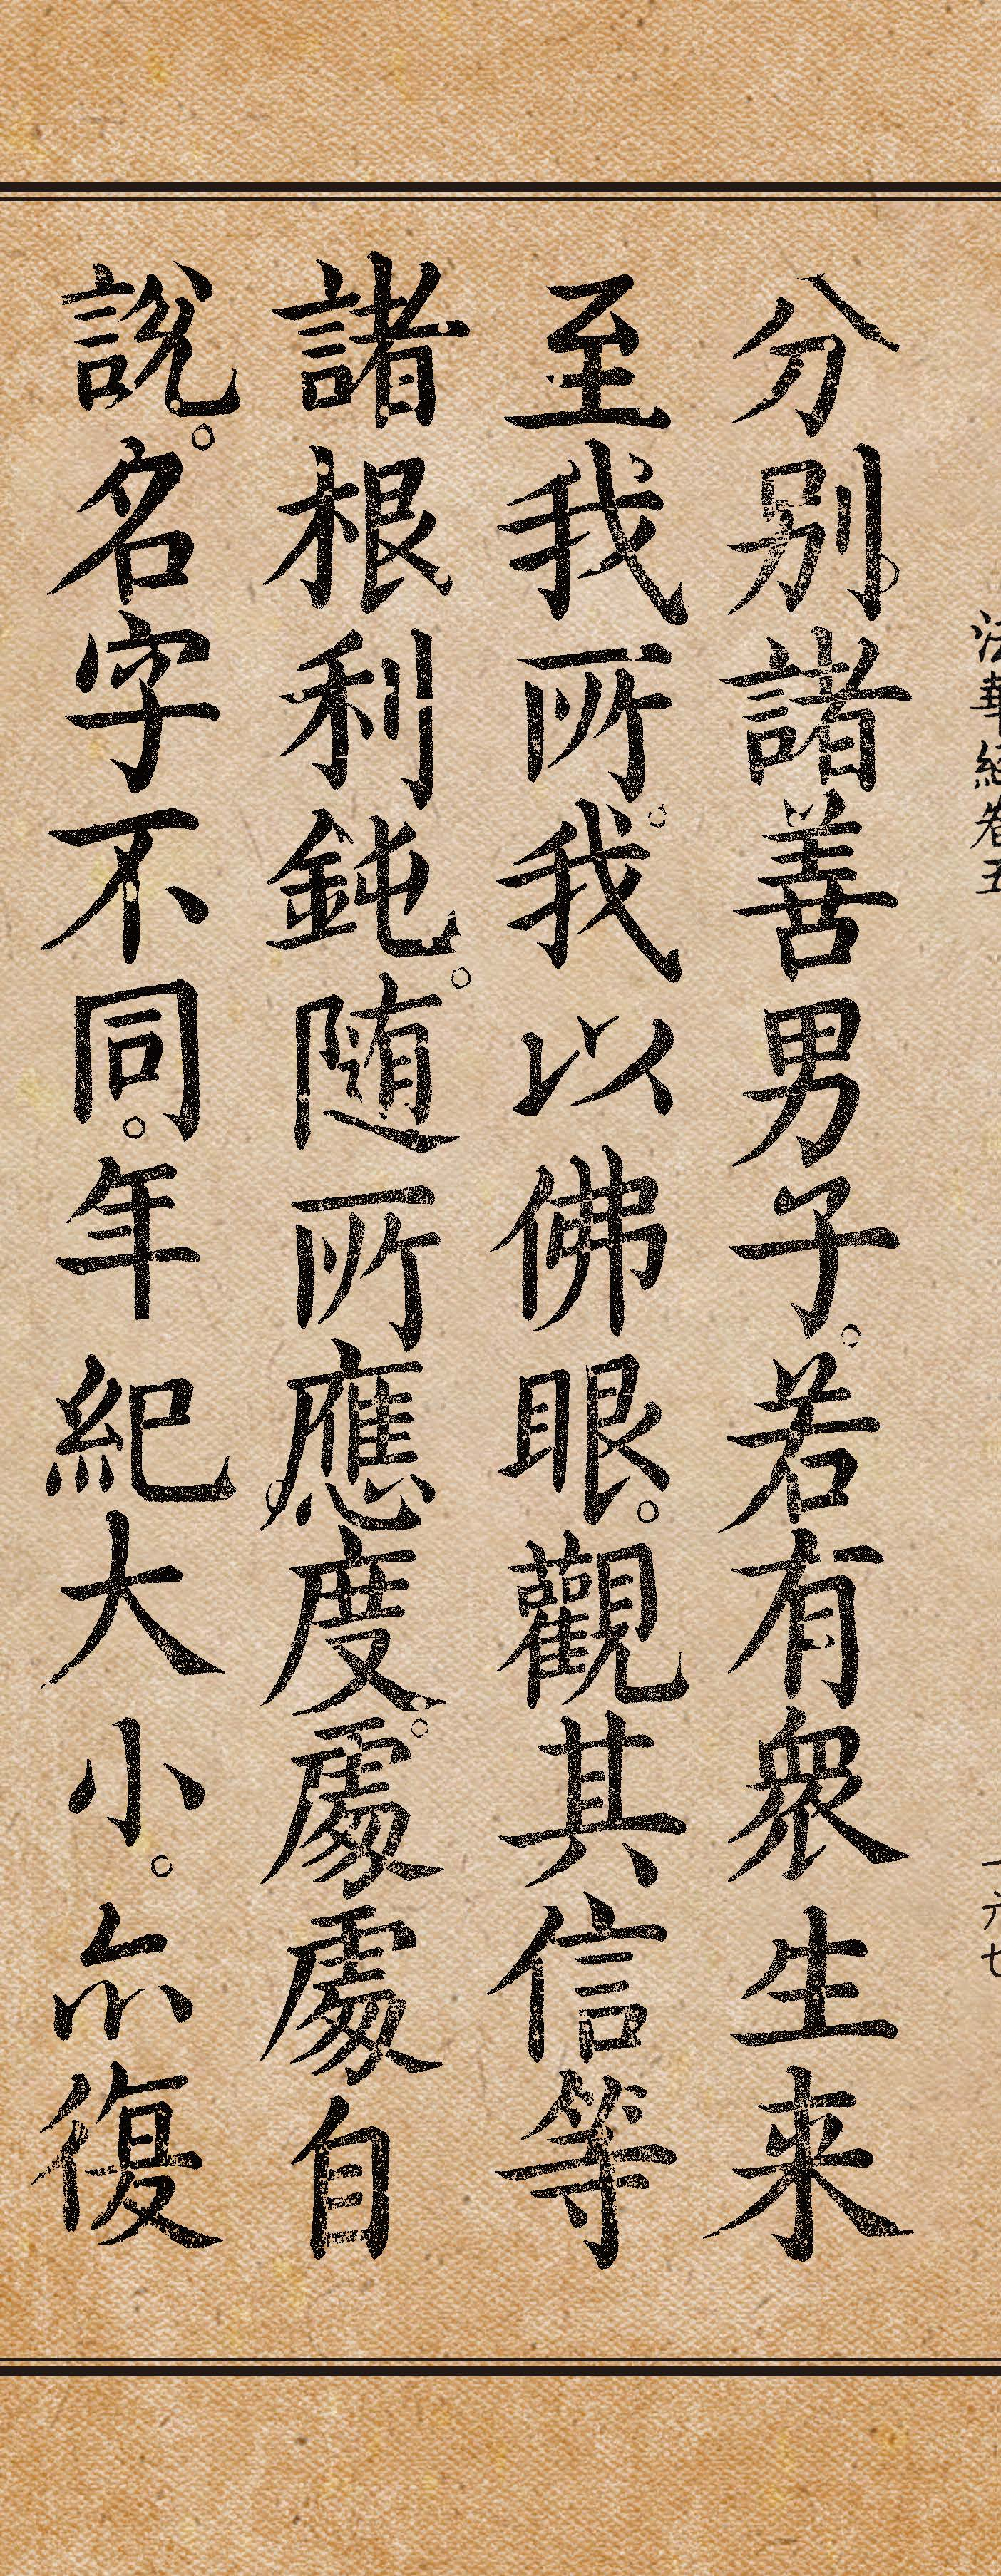 法華經卷五
一六七
分别。諸善男子。若有衆生来
至我所。我以佛眼。觀其信等
諸根利鈍。随所應度。處處自
說。名字不同。年紀大小。尒復